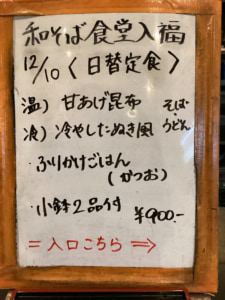 和そば食堂入福
12/10〈日替定食〉
温）甘あげ昆布 そば・
冷）冷やしたぬき風 うどん
・ふりかけごはん
(かつお)
・小鉢2品付 ¥900.-
=入口こちら⇒